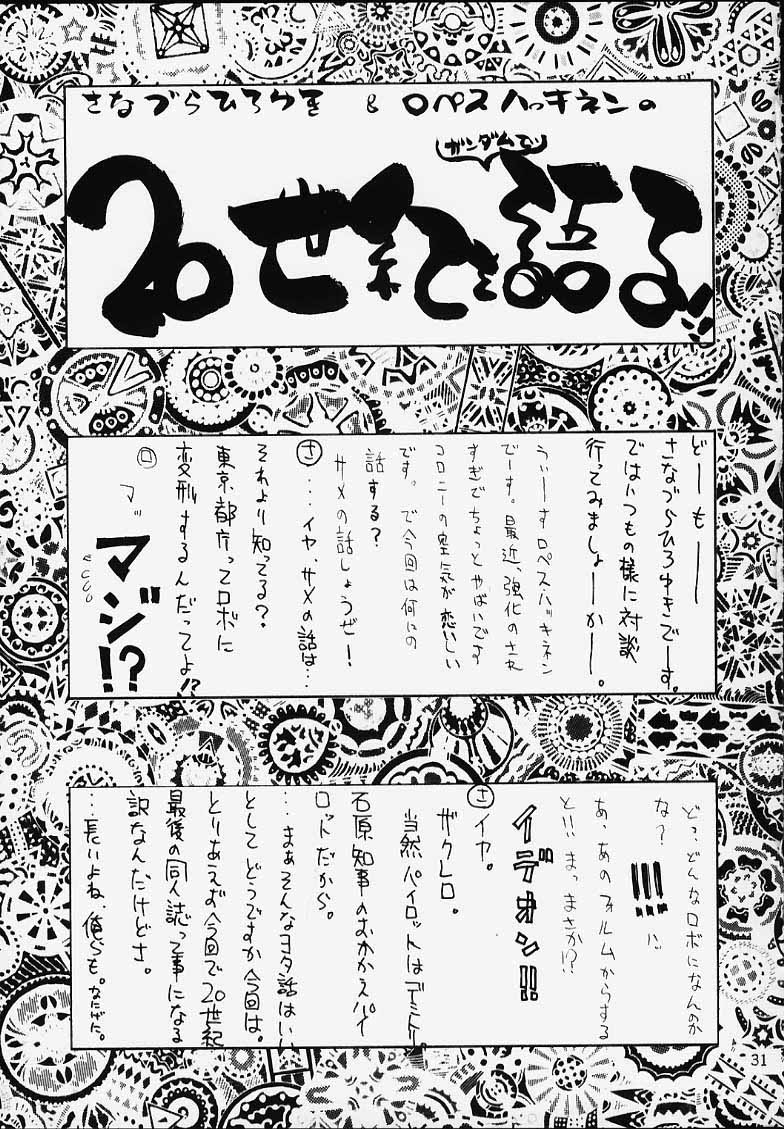 さなづらひろゆき & ロペスハッキネンの
ガンダムで
20世紀を語る!!
どーもーー
さなづらひろゆきでーす。
ではいつもの様に対談
行ってみましょーかー。
うぃーすロペス・ハッキネン
でーす。最近、強化のされ
すぎでちょっとやばいです
コロニーの空気が恋しい
です。で今回は何の
話する?
サメの話しようぜー!
さ…イヤ、サメの話は…
それより知ってる?
東京都庁ってロボに
変形するんだってよ!?
ロ マッ
マジ!?
どっ、どんなロボになんのか
な?
!!!ハッ
あ、あのフォルムからする
と!!まっまさか!?
イデオン!!
さ イヤ。
ザクレロ。
当然パイロットはデミトリー。
石原知事のおかかえパイ
ロットだから。
…まぁそんなヨタ話はいい
としてどうですか今回は。
とりあえず今回で20世紀
最後の同人誌って事になる
訳なんだけどさ。
…長いよね、俺らも。
31